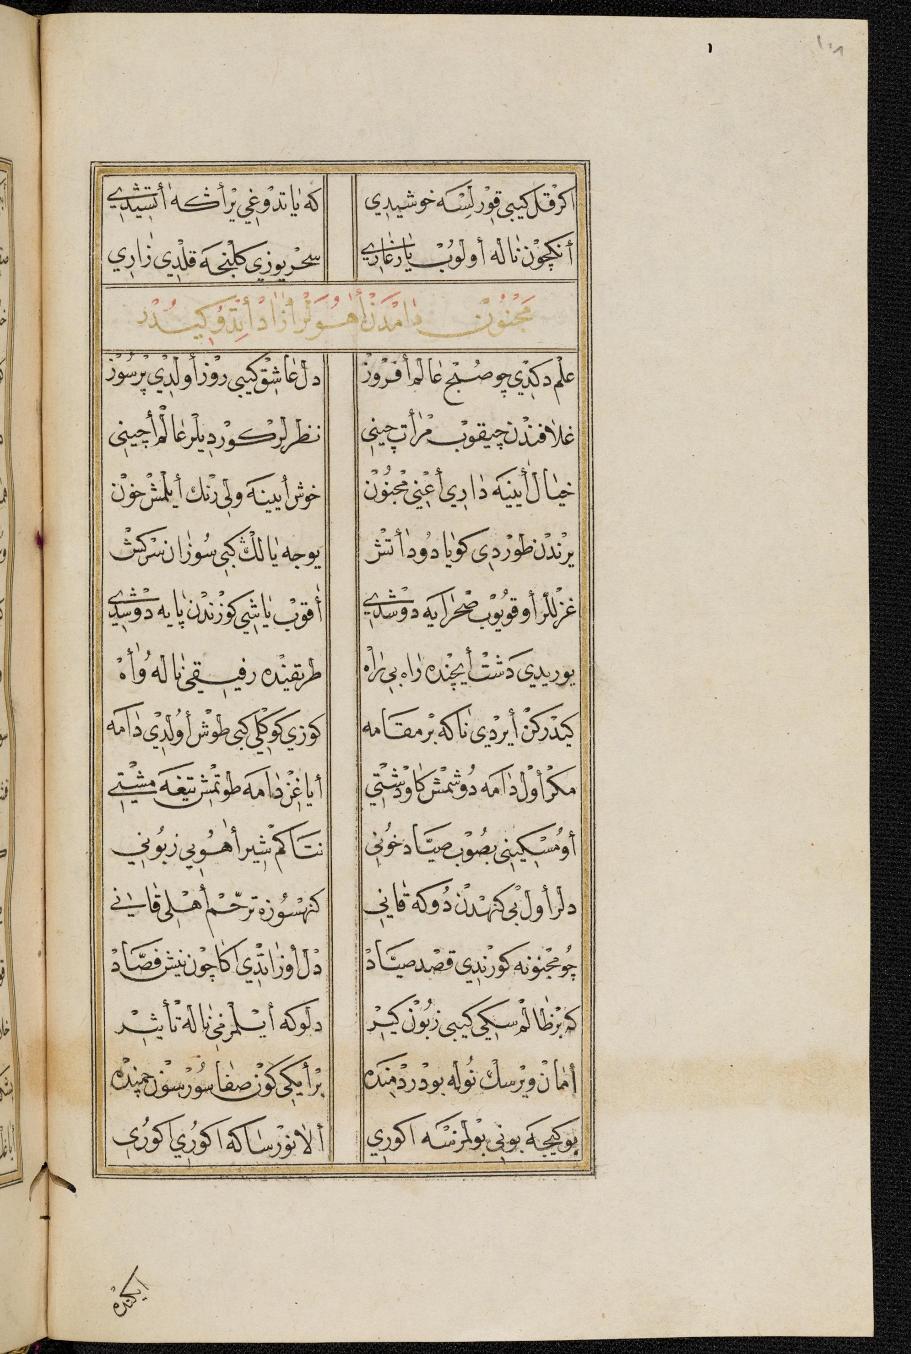 ١٠٨
اكر قل كيبى قورلسه خوشيدى كه ياندوغي يرأكه أتشيدى
أنكچون ناله أولوب يار غارى سحر يوزى كلنجه قلدى زارى
مجنون دامدن أهولر أزاد أتدوكيدر
علم دكدي چو صبح عالم أفروز دل عاشق كيبى روز أولدي پر سوز
غلافندن چيقوب مرأت چينى نظرلر كورديلر عالم أچينى
خيال أينيه دارى أعني مجنون خوش أيينه ولى رنك أيلمش خون
يرندن طوردى كويا دود أتش يوجه يالڭ كبى سوزان سركش
غزللر أوقويوب صحرايه دوشدى أقوب ياشي كوزندن پايه دوشدى
يوريدي دشت أيچنده راه بى راه طريقنده رفيقى ناله وأه
كيدركن أيردي ناكه بر مقامه كوزي كوكلي كبى طوش أولدي دامه
مكر أول دامه دوشمش كاو دشتي أياغن دامه طوتمش تيغه مشتى
أو مسكينى بصوب صياد خونى نتاكم شير أهويي زبونى
دلر أول بى كنهدن دوكه قانى كنهسوزه ترحم أهلى قانى
چو مجنونه كورندي قصد صياد دل أوزاتدي اكا چون نيش فصاد
كه بر ظالم سكى كيبى زبون كير دلوكه أيلمزمى ناله تأثير
أمان ويرسك نوله بو دردمنده بر أيكى كون صفا سورسون چمنده
بو كيجه بونى بولمزسه اكورى ألا نورسا كه اكوري اكورى
ايكنده